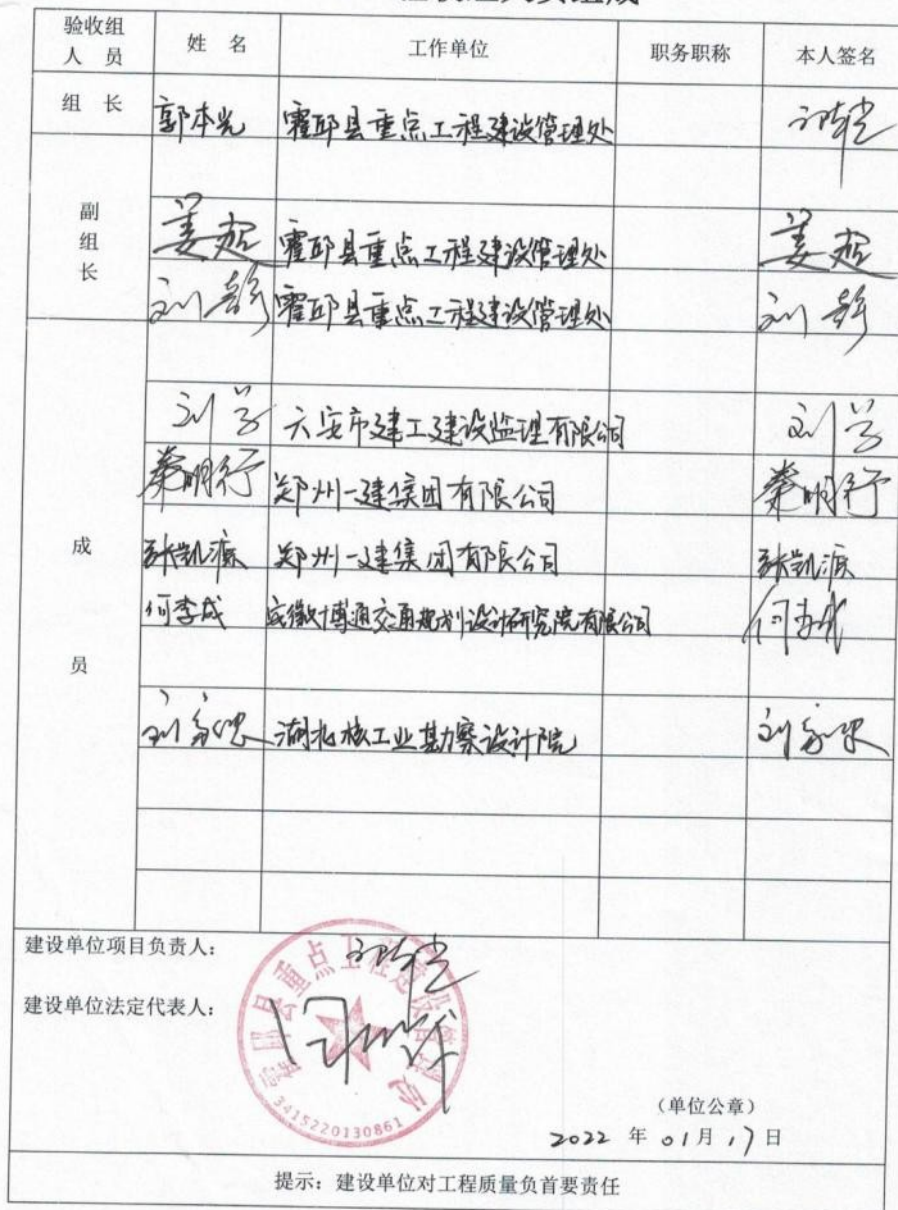 验收组人员 姓 名 工作单位 职务职称 本人签名
组 长 郭本光 霍邱县重点工程建设管理处
副组长 姜超 霍邱县重点工程建设管理处 姜超
刘彭 霍邱县重点工程建设管理处 刘彭
成员 刘学 六安市建工建设监理有限公司 刘学
秦明行 郑州一建集团有限公司 秦明行
张凯源 郑州一建集团有限公司 张凯源
何李成 安徽博通交通规划设计研究院有限公司 何李成
刘家忠 湖北核工业勘察设计院 刘家忠
建设单位项目负责人:
建设单位法定代表人:
霍邱县重点工程建设管理处
3415220130861
(单位公章)
2022 年 01月 17日
提示:建设单位对工程质量负首要责任